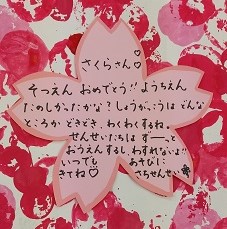 さくらさん♡
そつえん おめでとう!! ようちえん
たのしかったかな？ しょうがっこうは どんな
ところか どきどき、わくわくするね。
せんせいたちは ずーっと
おうえんするし、わすれないよ!!
いつでも あそびに
きてね♡ さちせんせい